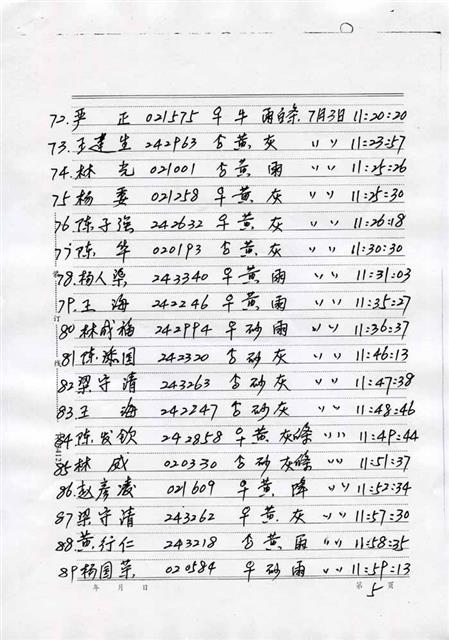 72.严 正 021575 ♀ 牛 雨白条 7月3日 11:20:20
73.王建生 242963 ♂ 黄 灰 〃 〃 11:23:57
74.林 光 021001 ♂ 黄 雨 〃 〃 11:25:26
75 杨 委 021258 ♀ 黄 灰 〃 〃 11:25:30
76.陈子强 242632 ♀ 黄 灰 〃 〃 11:26:18
77陈 华 020193 ♂ 黄 灰 〃 〃 11:30:30
78.杨人梁 243340 ♀ 黄 雨 〃 〃 11:31:03
79.王 海 242246 ♀ 黄 雨 〃 〃 11:35:27
订
80林成福 242994 ♀ 砂 雨 〃 〃 11:36:37
81陈 国 242320 ♂ 砂 灰 〃 〃 11:46:13
线
82.梁守清 243263 ♂ 砂 灰 〃 〃 11:47:38
83.王 海 242247 ♂ 砂 灰 〃 〃 11:48:46
84.陈发钦 242858 ♀ 黄 灰条 〃 〃 11:49:44
85林 威 020330 ♂ 砂 灰条 〃 〃 11:51:37
86.赵彦凌 021609 ♀ 黄 降 〃 〃 11:52:34
87.梁守清 243262 ♀ 黄 灰 〃 〃 11:57:30
88.黄行仁 243218 ♂ 黄 雨 〃 〃 11:58:35
89杨国荣 020584 ♀ 砂 雨 〃 〃 11:59:13
年 月 日 第 5 页